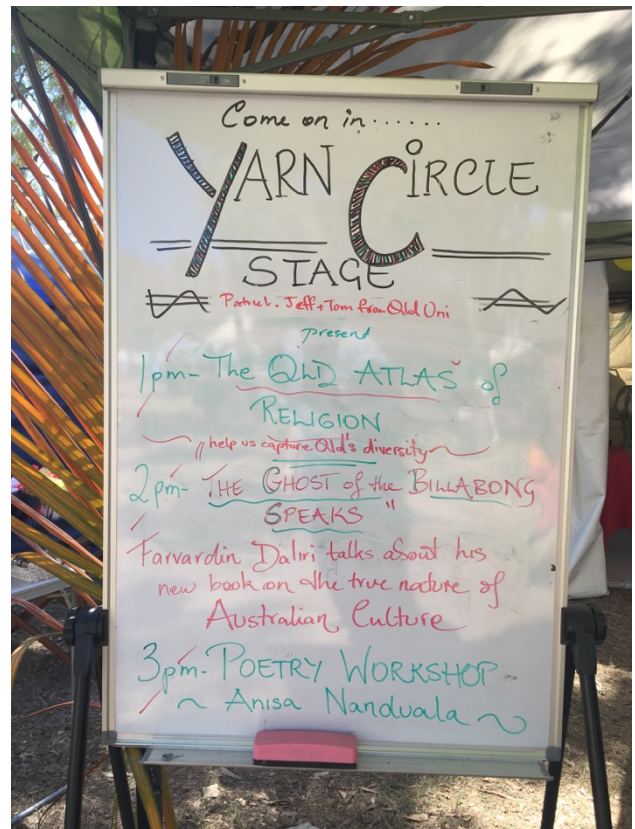 Come on in......
YARN CIRCLE
STAGE
Patrick. Jeff + Tom from Qld Uni
present
1pm- The QLD ATLAS of
RELIGION
help us capture Qld's diversity
2pm- "THE GHOST of the BILLABONG
SPEAKS"
Farvardin Daliri talks about his
new book on the true nature of
Australian Culture
3pm- POETRY WORKSHOP
~ Anisa Nandvala ~